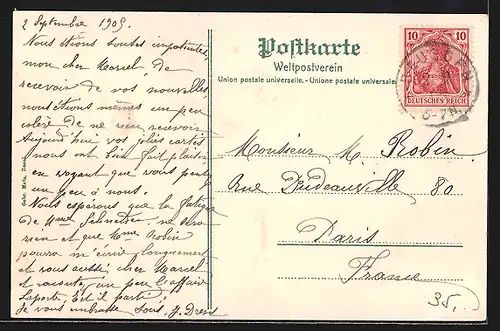 2 Septembre 1905.
Nous étions toutes impatientes,
mon cher Marcel, de
recevoir de vos nouvelles
nous étions mêmes un peu
colère de ne rien recevoir
Aujourd'hui vos jolies cartes
nous ont bien fait plaisir
en voyant que vous pensez
un peu à nous.
Nous espérons que la
De Mme
rien et que Mme Robin
pourra m'écrire longuement
et vous aussi, cher Marcel
et ensuite, un peu l'affaire
Laporte, Est il parti?
Je vous embrasse tous, J.
Postkarte
Weltpostverein
Union postale universelle. - Unione postale universale
10 10
DEUTSCHES REICH
6-7N
Monsieur M. Robin
Rue Deudeauville 80
Paris
France
Gebr. Metz,
35.-